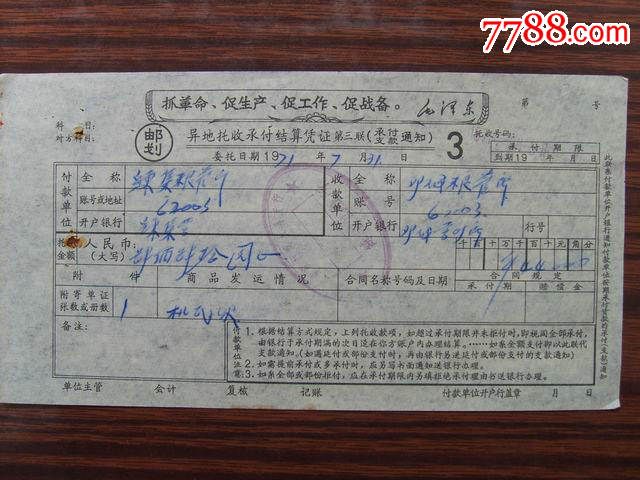 7788.com
抓革命、促生产、促工作、促战备。 毛泽东
第 号
科 目:
对方科目:
邮划
异地托收承付结算凭证 第三联(承付支款通知) 3
托收号码:
委托日期 1971年7月31日
承付期限
到期19 年 月 日
付款单位
全称
账号或地址 62003
开户银行
收款单位
全称
账号 62003
开户银行
行号
托收金额 人民币:(大写)
千百十万千百十元角分
附件 商品发运情况 合同名称号码及日期 合同规定
承付期 赔偿金
附寄单证张数或册数 1
备注:
付款单位注意
1.根据结算方式规定,上列托收款项,如超过承付期限并未拒付时,即视同全部承付,
由银行于承付期满的次日迳在你方账户内办理结算。……如系全额支付即以此联代
支款通知(如遇延付或部份支付时,再由银行另送延付或部份支付的支款通知)
2.如需提前承付或多承付时,应另写书面通知送银行办理。
3.如系全部或部份拒付,应在承付期限内另填拒绝承付理由书送银行办理。
单位主管 会计 复核 记账 付款单位开户行盖章 月 日
此联系付款单位开户银行通知付款单位按期承付货款的承付(支款)通知